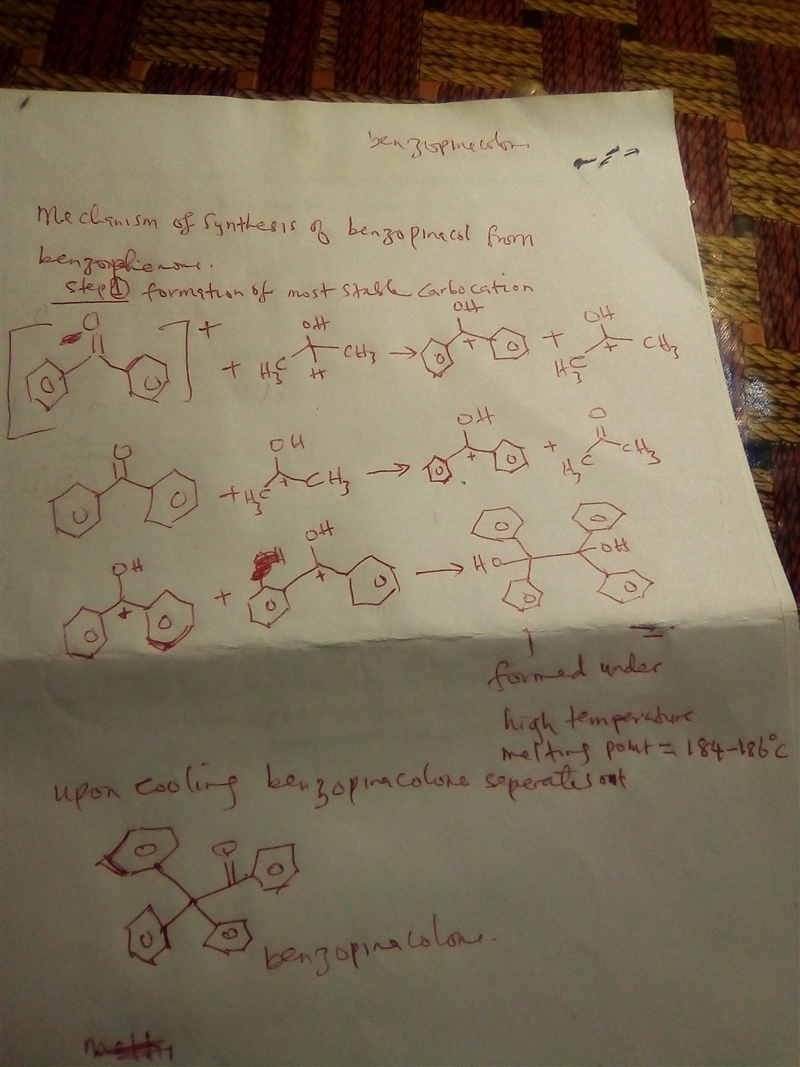 benzopinacolon
Mechanism of Synthesis of benzopinacol from
benzophenone.
Step ① formation of most stable carbocation
O + OH CH3 H3C H + → OH + + OH + H3C CH3
O + OH H3C + CH3 → OH + + O H3C CH3
OH + + OH + → HO OH
formed under
high temperature
melting point = 184-186°C
upon cooling benzopinacolone seperates out
O
benzopinacolone.